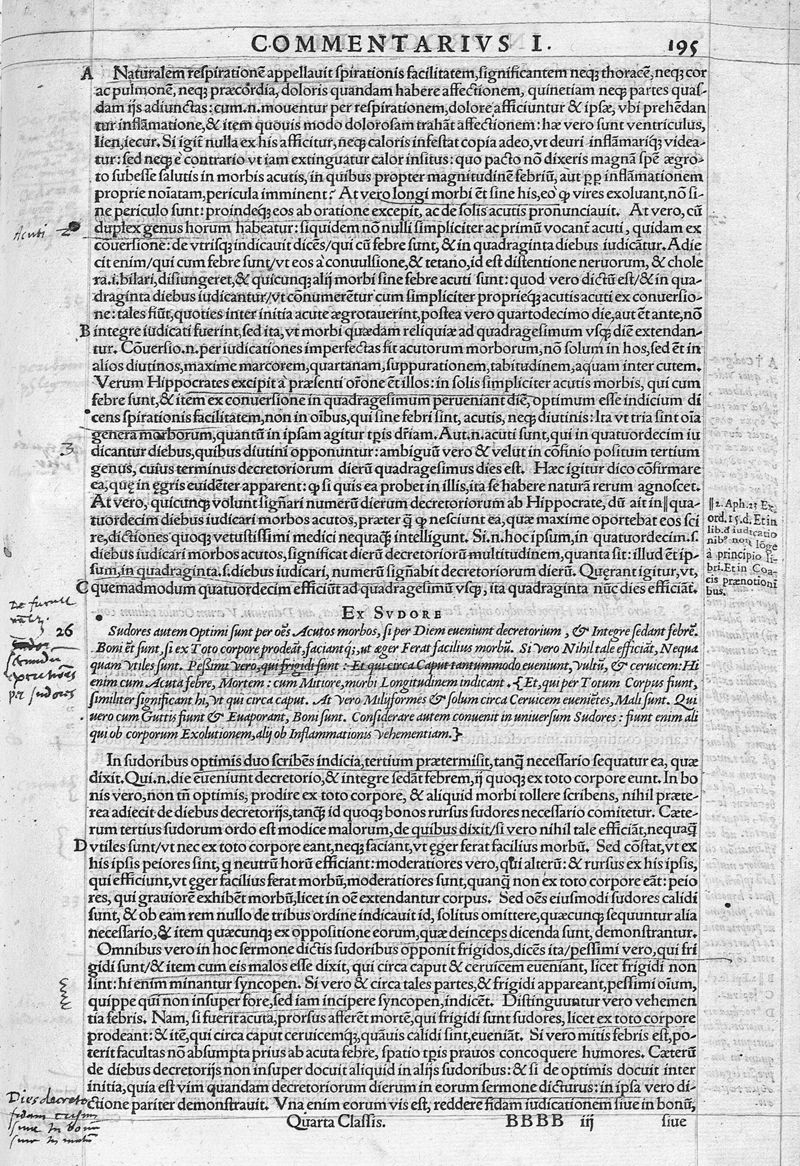 COMMENTARIVS I. 195
A Naturalem respirationē appellauit spirationis facilitatem, significantem neq; thoracē, neq; cor
ac pulmonē, neq; præcordia, doloris quandam habere affectionem, quinetiam neq; partes quas-
dam ijs adiunctas: cum.n.mouentur per respirationem, dolore afficiuntur & ipsæ, vbi prehēdan
tur inflāmatione, & item quouis modo dolorosam trahāt affectionem: hæ vero sunt ventriculus,
lien, iecur. Si igit̄ nulla ex his afficitur, neq; caloris infestat copia adeo, vt deuri inflāmariq; videa-
tur: sed neq; e contrario vt iam extinguatur calor insitus: quo pacto nō dixeris magnā spē ægro-
to subesse salutis in morbis acutis, in quibus propter magnitudinē febriū, aut pp inflāmationem
proprie noīatam, pericula imminent? At vero longi morbi ēt sine his, eo ꝙ vires exoluant, nō si-
ne periculo sunt: proindeq; eos ab oratione excepit, ac de solis acutis pronūciauit. At vero, cū
duplex genus horum habeatur: siquidem nō nulli simpliciter ac primū vocant̄ acuti, quidam ex
cōuersione: de vtrisq; indicauit dicēs/qui cū febre sunt, & in quadraginta diebus iudicātur. Adie
cit enim/qui cum febre sunt/vt eos a conuulsione, & tetano, id est distentione neruorum, & chole
ra.i.bilari, disiungeret, & quicunq; alij morbi sine febre acuti sunt: quod vero dictū est/& in qua-
draginta diebus iudicantur/vt cōnumerētur cum simpliciter proprieq; acutis acuti ex conuersio-
ne: tales fiūt, quoties inter initia acute ægrotauerint, postea vero quartodecimo die, aut ēt ante, nō
B integre iudicati fuerint, sed ita, vt morbi quædam reliquiæ ad quadragesimum vsq; diē extendan-
tur. Cōuersio.n.per iudicationes imperfectas fit acutorum morborum, nō solum in hos, sed ēt in
alios diutinos, maxime marcorem, quartanam, suppurationem, tabitudinem, aquam inter cutem.
Verum Hippocrates excipit a præsenti orōne ēt illos: in solis simpliciter acutis morbis, qui cum
febre sunt, & item ex conuersione in quadragesimum perueniant diē, optimum esse indicium di
cens spirationis facilitatem, non in oībus, qui sine febri sint, acutis, neq; diutinis: Ita vt tria sint oīa
genera morborum, quantū in ipsam agitur tp̄is dr̄iam. Aut.n.acuti sunt, qui in quatuordecim iu
dicantur diebus, quibus diutini opponuntur: ambiguū vero & velut in cōfinio positum tertium
genus, cuius terminus decretoriorum dierū quadragesimus dies est. Hæc igitur dico cōfirmare
ea, quę in ęgris euidēter apparent: ꝙ si quis ea probet in illis, ita se habere naturā rerum agnoscet.
At vero, quicunq; volunt signāri numerū dierum decretoriorum ab Hippocrate, dū ait in||qua-
tuordecim diebus iudicari morbos acutos, præter q̄ ꝙ nesciunt ea, quæ maxime oportebat eos sci
re, dictiones quoq; vetustissimi medici nequaq̄ intelligunt. Si.n.hoc ipsum, in quatuordecim.s.
diebus iudicari morbos acutos, significat dierū decretoriorū multitudinem, quanta sit: illud ēt ip-
sum, in quadraginta.s.diebus iudicari, numerū signābit decretoriorum dierū. Quęrant igitur, vt,
C quemadmodum quatuordecim efficiūt ad quadragesimū vsq;, ita quadraginta nūc dies efficiāt.
||2. Aph. 23 Ex
ord. 15. d. Et in
lib. d iudicatio
nibꝰ non lōge
a principio li-
bri. Et in Coa-
cis prænotioni
bus.
Acuti
3
26
per sudores
EX SVDORE
Sudores autem Optimi sunt per oēs Acutos morbos, si per Diem eueniunt decretorium, & Integre sedant febrē.
Boni ēt sunt, si ex Toto corpore prodeāt, faciantq;, ut æger Ferat facilius morbū. Si vero Nihil tale efficiāt, Nequa
quam vtiles sunt. Peßimi vero, qui frigidi sunt: Et qui circa Caput tantummodo eueniunt, vultū, & ceruicem: Hi
enim cum Acuta febre, Mortem: cum Mitiore, morbi Longitudinem indicant. {Et, qui per Totum Corpus fiunt,
similiter significant hi, vt qui circa caput. At vero Miliformes & solum circa Ceruicem eueniētes, Mali sunt. Qui
uero cum Guttis fiunt & Euaporant, Boni sunt. Considerare autem conuenit in uniuersum Sudores: fiunt enim alij
qui ob corporum Exolutionem, alij ob Inflammationis vehementiam.}
In sudoribus optimis duo scribēs indicia, tertium prætermisit, tanq̄ necessario sequatur ea, quæ
dixit. Qui.n.die eueniunt decretorio, & integre sedāt febrem, ij quoq; ex toto corpore eunt. In bo
nis vero, non tn̄ optimis, prodire ex toto corpore, & aliquid morbi tollere scribens, nihil præte-
rea adiecit de diebus decretorijs, tanq̄ id quoq; bonos rursus sudores necessario comitetur. Cæte-
rum tertius sudorum ordo est modice malorum, de quibus dixit/si vero nihil tale efficiāt, nequaq̄
D vtiles sunt/vt nec ex toto corpore eant, neq; faciant, vt ęger ferat facilius morbū. Sed cōstat, vt ex
his ipsis peiores sint, q̄ neutrū horū efficiant: moderatiores vero, qui alterū: & rursus ex his ipsis,
qui efficiunt, vt ęger facilius ferat morbū, moderatiores sunt, quanq̄ non ex toto corpore eāt: peio
res, qui grauiorē exhibēt morbū, licet in oē extendantur corpus. Sed oēs eiusmodi sudores calidi
sunt, & ob eam rem nullo de tribus ordine indicauit id, solitus omittere, quæcunq; sequuntur alia
necessario, & item quæcunq; ex oppositione eorum, quæ deinceps dicenda sunt, demonstrantur.
Omnibus vero in hoc sermone dictis sudoribus opponit frigidos, dicēs ita/pessimi vero, qui fri
gidi sunt/& item cum eis malos esse dixit, qui circa caput & ceruicem eueniant, licet frigidi non
sint: hi enim minantur syncopen. Si vero & circa tales partes, & frigidi appareant, pessimi oīum,
quippe qui non insuper fore, sed iam incipere syncopen, indicēt. Distinguuntur vero vehemen
tia febris. Nam, si fuerit acuta, prorsus afferēt mortē, qui frigidi sunt sudores, licet ex toto corpore
prodeant: & itē, qui circa caput ceruicemq;, quāuis calidi sint, eueniāt. Si vero mitis febris est, po-
terit facultas nō absumpta prius ab acuta febre, spatio tp̄is prauos concoquere humores. Cæterū
de diebus decretorijs non insuper docuit aliquid in alijs sudoribus: & si de optimis docuit inter
initia, quia est vim quandam decretoriorum dierum in eorum sermone dicturus: in ipsa vero di-
ctione pariter demonstrauit. Vna enim eorum vis est, reddere fidam iudicationem siue in bonū,
Dies decreto
fidam
siue in bonū
siue in malū
Quarta Classis. BBBB iij siue